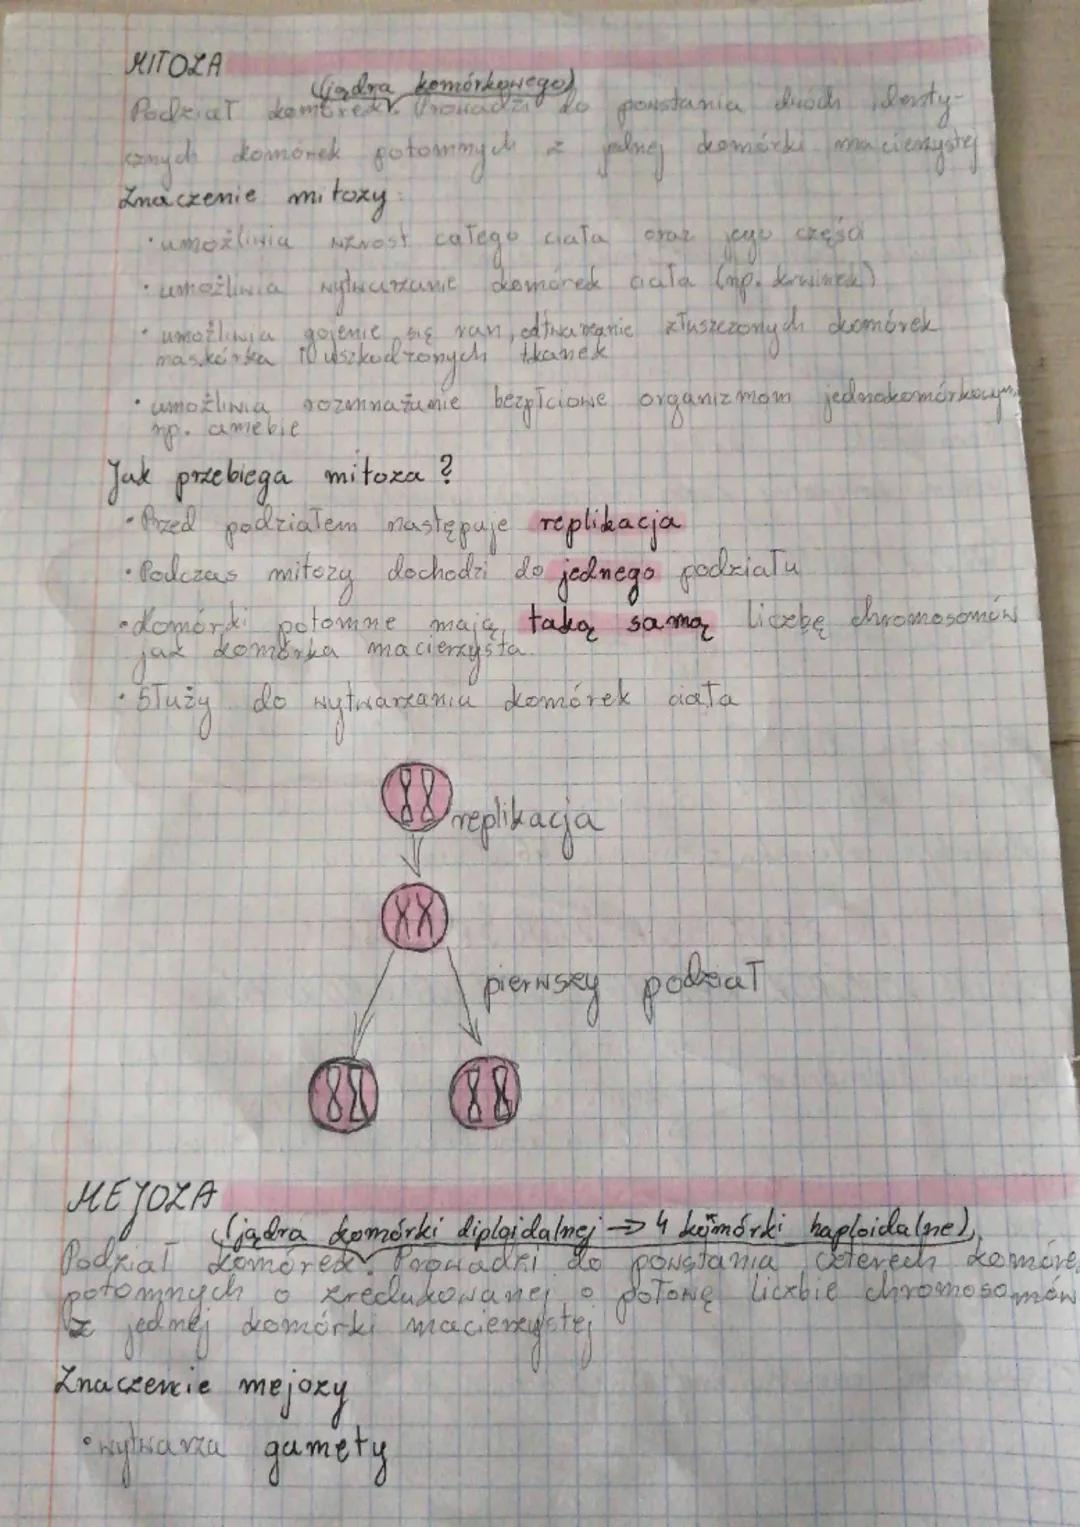 MITOZA
(jądra komórkowego)
Podział komórek. Prowadzi do powstania dwóch identy-
cznych komórek potomnych z jednej komórki macierzystej
Znaczenie mitozy:
• umożliwia wzrost całego ciała oraz jego części
• umożliwia wytwarzanie komórek ciała (np. krwinek)
• umożliwia gojenie się ran, odtwarzanie złuszczonych komórek
naskórka uszkodzonych tkanek
• umożliwia rozmnażanie bezpłciowe organizmom jednokomórkowym
np. amebie
Jak przebiega mitoza?
• Przed podziałem następuje replikacja
• Podczas mitozy dochodzi do jednego podziału
• komórki potomne mają taką samą liczbę chromosomów
jak komórka macierzysta.
• Służy do wytwarzania komórek ciała
replikacja
pierwszy podział
MEJOZA
(jądra komórki diploidalnej → 4 komórki haploidalne)
Podział komórek. Prowadzi do powstania czterech komóre
potomnych o zredukowanej o połowę liczbie chromosomów
z jednej komórki macierzystej
Znaczenie mejozy
• wytwarza gamety